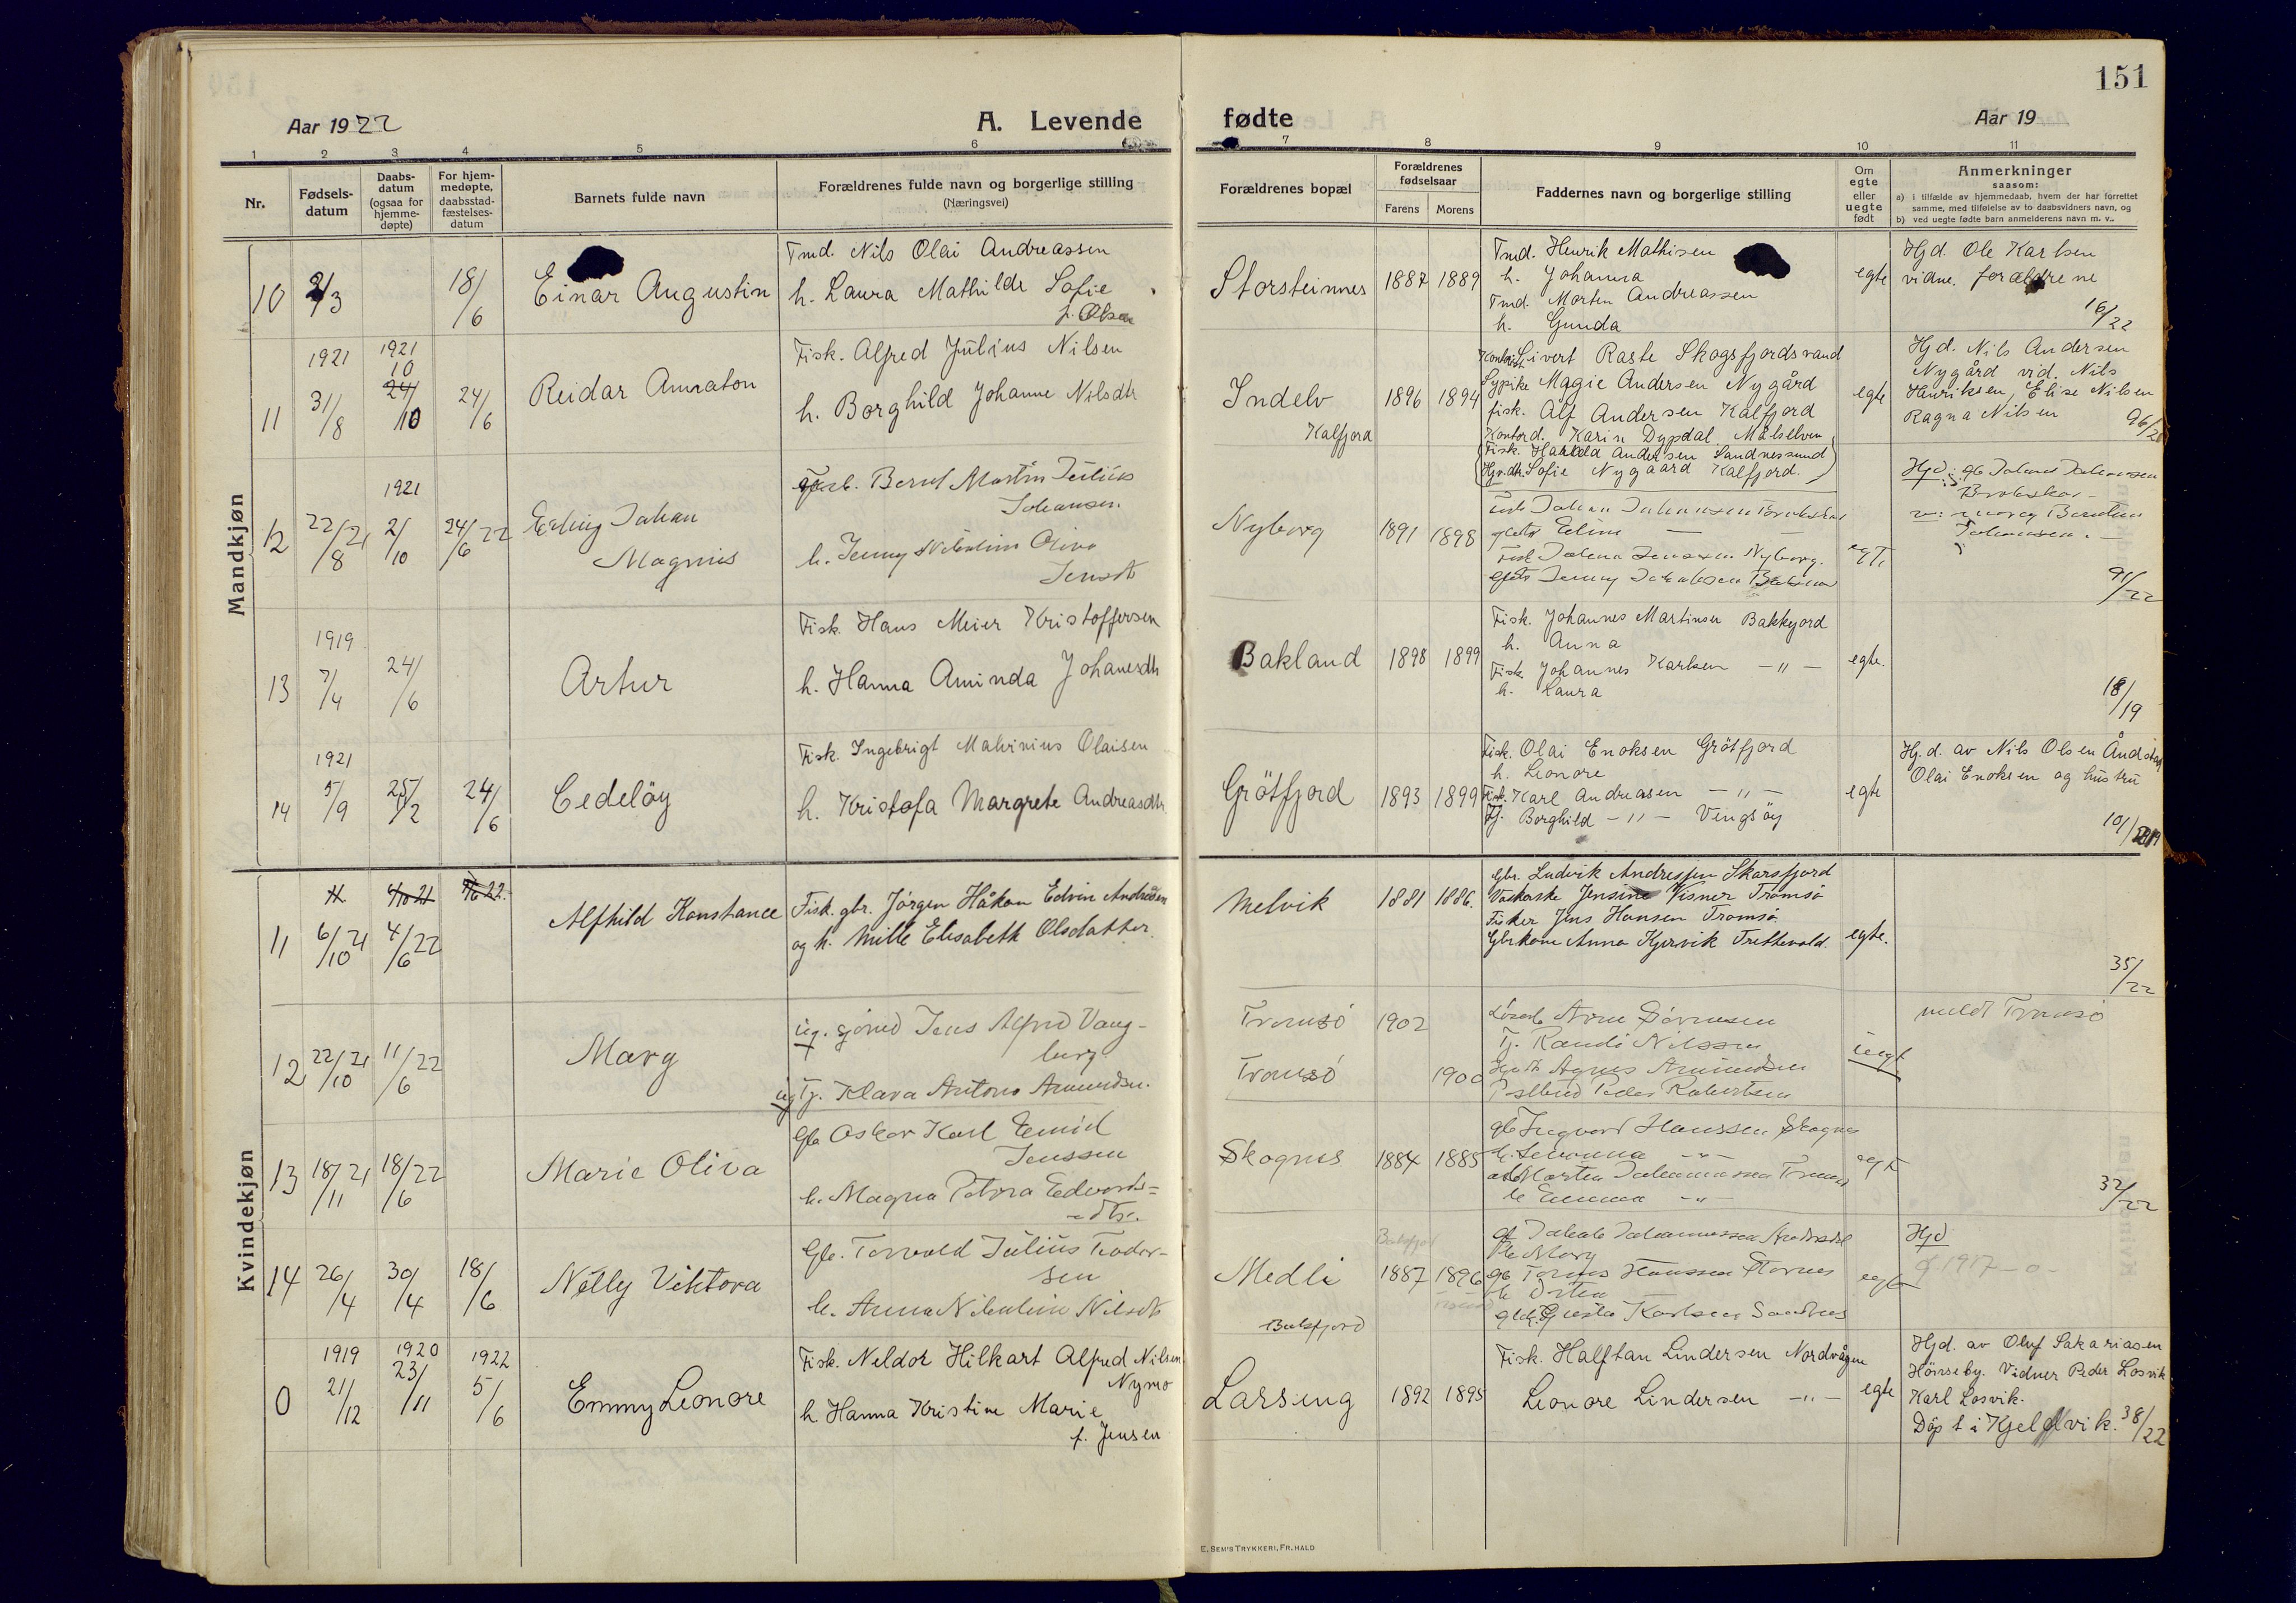 151
Aar 1922
A. Levende
fødte
Aar 19
1 2 3 4 5 6 7 8 9 10 11
Nr.
Fødsels-
datum
Daabs-
datum
(ogsaa for
hjemme-
døpte)
For hjem-
medøpte,
daabsstad-
fæstelses-
datum
Barnets fulde navn
Forældrenes fulde navn og borgerlige stilling
(Næringsvei)
Forældrenes bopæl
Forældrenes
fødselsaar
Farens Morens
Faddernes navn og borgerlige stilling
Om
egte
eller
uegte
født
Anmerkninger
saasom:
a) i tilfælde av hjemmedaab, hvem der har forrettet
samme, med tilføielse av to daabsvidners navn, og
b) ved uegte fødte barn anmelderens navn m. v..
Mandkjøn
10
2/3
18/6
Einar Augustin
Tmd. Nils Olai Andreassen
h. Laura Mathilde Sofie
f. Olsen
Storsteinnes
1887 1889
Tmd. Henrik Mathisen
h. Johanna
Tmd. Morten Andreassen
h. Gunda
egte
Hjd. Ole Karlsen
vidne. forældrene
16/22
11
1921
31/8
1921
10
24/10
24/6
Reidar Amraton
Fisk. Alfred Julius Nilsen
h. Borghild Johanne Nilsdtr
Indelv
Kalfjord
1896 1894
Sivert Raste Skogsfjordsvand
Sypike Magie Andersen Nygård
fisk. Alf Andersen Kalfjord
Kontord. Karin Dypdal Målselven
Fisk. Harald Andersen Sandnessund
Sofie Nygaard Kalfjord.
egte
Hjd. Nils Andersen
Nygård vid. Nils
Henriksen, Elise Nilsen
Ragna Nilsen
12
22/8 21
1921
2/10
24/6 22
Erling Johan
Magnus
Bernt Martin Julius
Johansen
h. Jenny Nikoline Oliva
Jensdtr
Nyborg
1891 1898
Johan Johansen
Elim
Nyborg.
Jenny
egte
Hjd:
Johansen.
91/22
13
1919
7/4
24/6
Artur
Fisk. Hans Meier Kristoffersen
h. Hanna Aminda Johanesdtr
Bakland
1898 1899
Fisk. Johannes Martinsen Bakkejord
h. Anna
Fisk. Johannes Karlsen — " —
h. Laura
egte.
18/19
14
1921
5/9
25/2
24/6
Cedeløy
Fisk. Ingebrigt Malvinius Olaisen
h. Kristofa Margrete Andreasdtr
Grötfjord
1893 1899
Fisk. Olai Enoksen Grötfjord
h. Leonore
Fisk. Karl Andreasen — " —
Tj. Borghild — " — Vengsöy
egte
Hj.d. av Nils Olsen
Olai Enoksen og hustru
Kvindekjøn
11
6/10 21
4/6 22
Alfhild Konstance
Fisk. gbr. Jörgen Håkon Edvin Andresen
og h. Mille Elisabeth Olsdatter.
Melvik
1881 1886.
Gbr. Ludvik Andressen Skarsfjord
Vaskeske Jensine Visner Tromsö
Fisker Jens Hansen Tromsö
Gbrkone Anna Kjervik Trettevold.
egte.
35/22
12
22/10 21
11/6 22
Mary
ug. Jens Alfred Vang-
berg
ug Tj. Klara Antona Amundsen.
Tromsö
1902
Tromsö
1900
Arne Sörensen
Tj. Randi Nilssen
Agnes Amundsen
Peder Robertsen
uegt
meldt Tromsö
13
18/11 21
18/6 22
Marie Oliva
Gb Oskar Karl Emil
Jenssen
h. Magna Petora Edvards-
dtr.
Skognes
1884 1885
gb Ingvart Hanssen Skognes
Morten Johannessen
h Emma — " —
egt
32/22
14
26/4
30/4
18/6
Nelly Viktora
Gb. Torvald Julius Teodor-
sen
h. Anna Nikoline Nilsdtr
Medli
Balsfjord
1887 1896
h Mary
gb Hanssen Stornes
Karlsen Sandnes
egte
Hjd
0
1919
21/12
1920
23/11
1922
5/6
Emmy Leonore
Fisk. Neldor Hilkart Alfred Nilsen
Nymo
h Hanna Kristine Marie
f. Jensen
Larseng
1892 1895
Fisk. Halftan Lindersen Nordvågen
Leonore Lindersen — " —
egte
Hjd. av Oluf Sakariasen
Hönseby. Vidner Peder Losvik
Karl Losvik.
Döpt i Kjelvik. 38/22
E. SEM'S TRYKKERI, FR. HALD